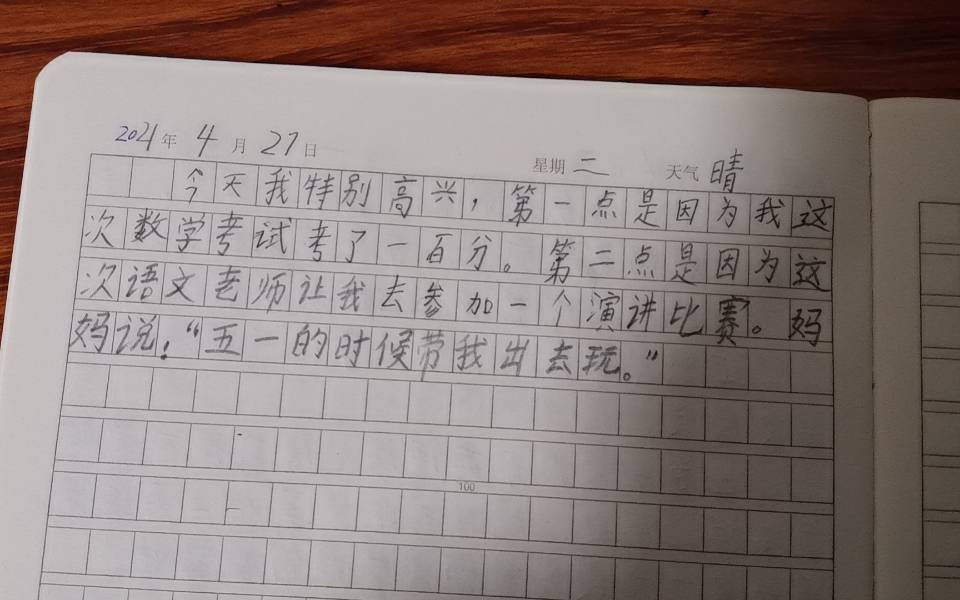 2021年4月27日 星期二 天气晴
今天我特别高兴,第一点是因为我这
次数学考试考了一百分。第二点是因为这
次语文老师让我去参加一个演讲比赛。妈
妈说:“五一的时候带我出去玩。”
100